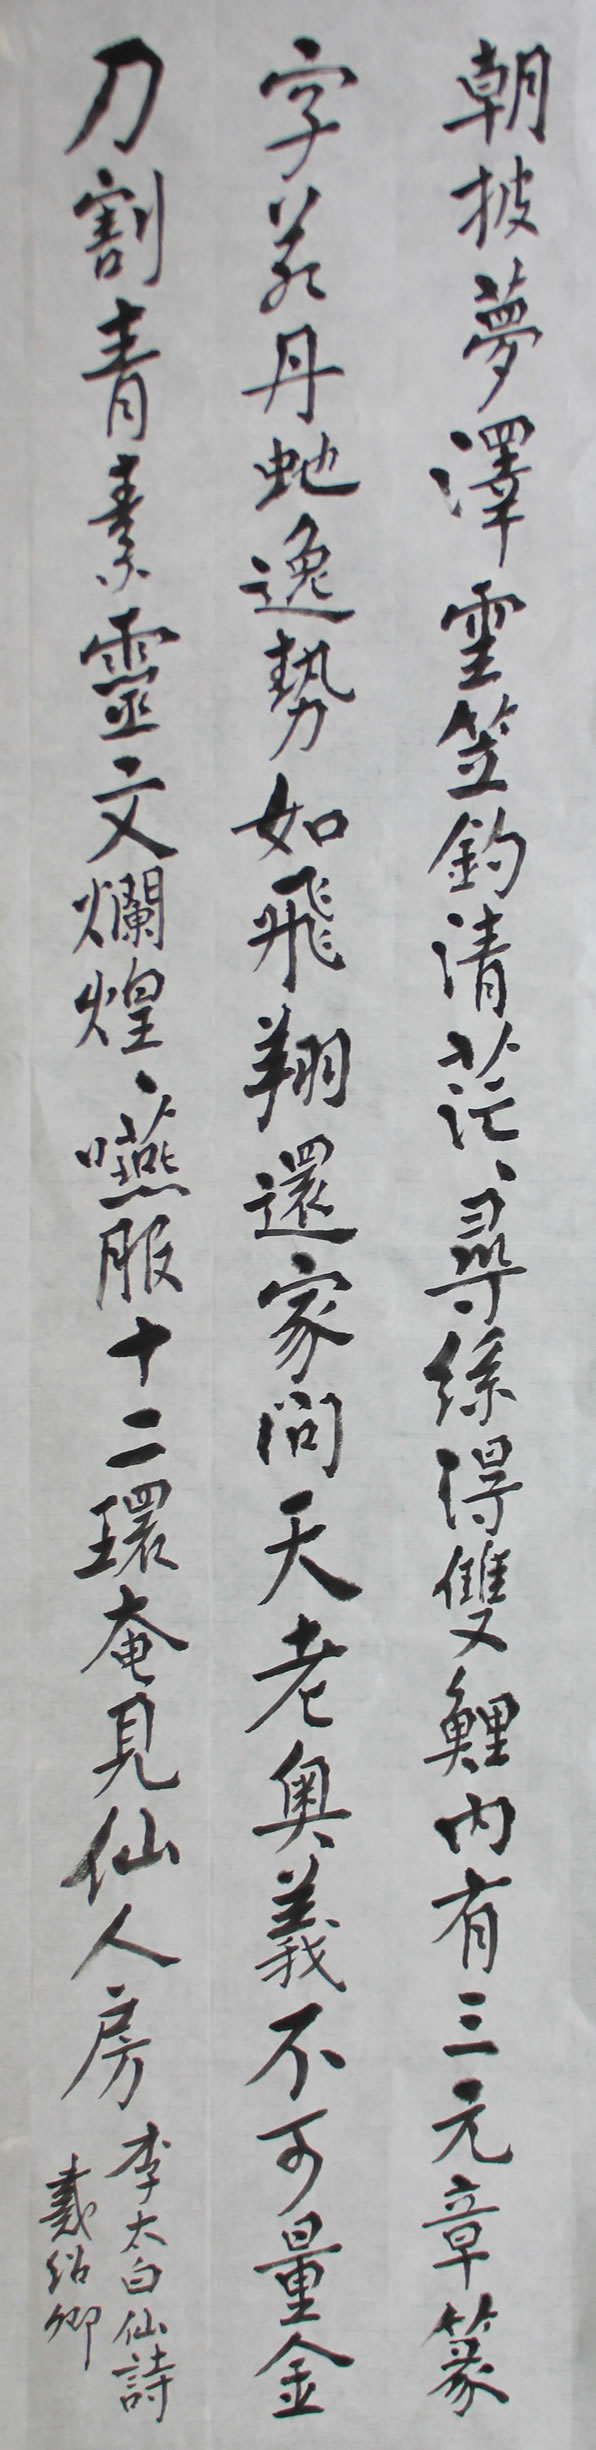 朝披夢澤雲笠釣清茫、尋絲得雙鯉内有三元章篆
字若丹虵逸勢如飛翔還家問天老奥義不可量金
刀割青素靈文爛煌、嚥服十二環奄見仙人房
李太白仙詩
戴紹卿